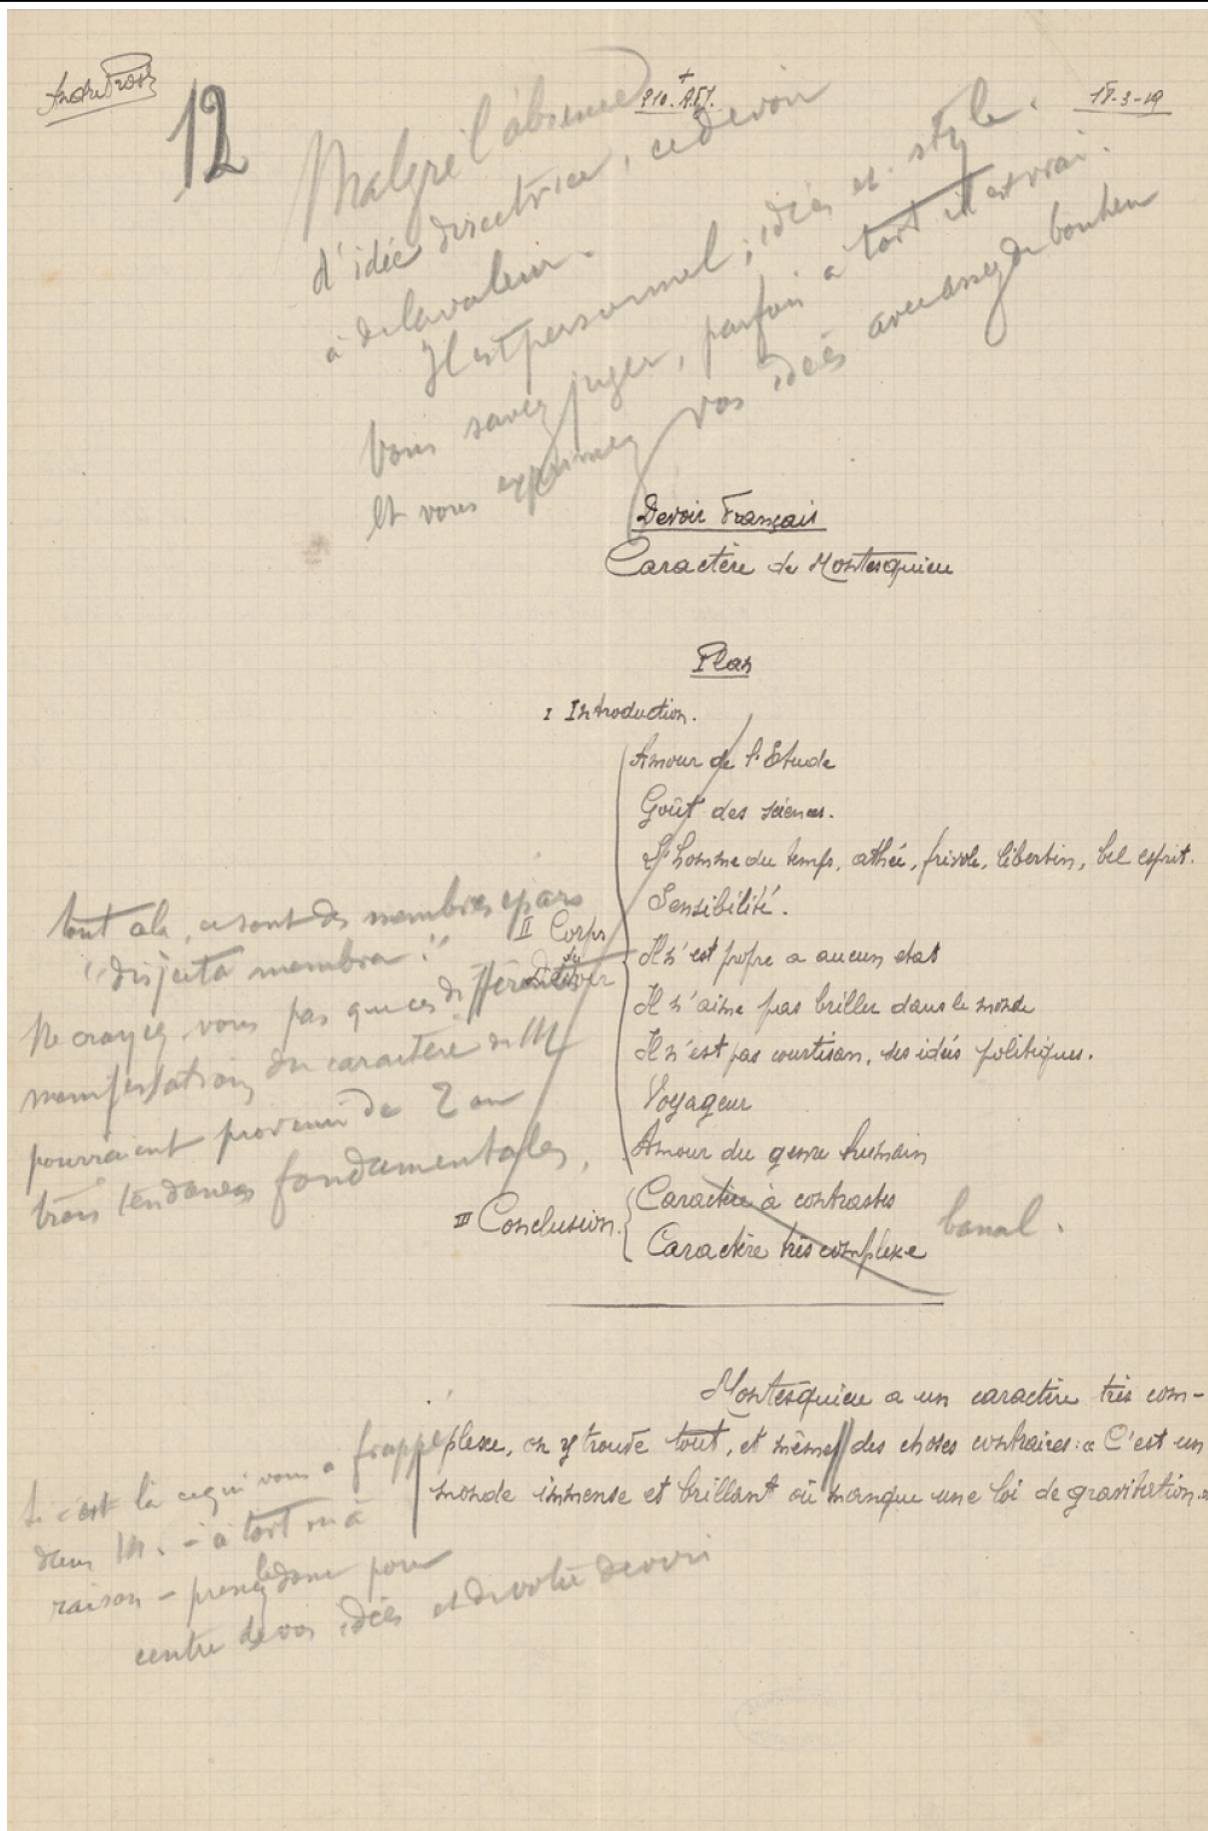 André
12
18-3-19
Malgré l'absence
d'idée directrice, ce devoir
a de la valeur.
Il est personnel; idées et style.
Vous savez juger, parfois à tort il est vrai.
Et vous exprimez vos idées avec assez de bonheur
Devoir Français
Caractère de Montesquieu
Plan
I Introduction.
Amour de l'Etude
Goût des sciences.
L'homme du temps, athée, frivole, libertin, bel esprit.
Sensibilité.
II Corps
du
Devoir
Il n'est propre a aucun etat
Il n'aime pas briller dans le monde
Il n'est pas courtisan, ses idées politiques.
Voyageur
Amour du genre humain
tout cela, ce sont des membres épars
"disjecta membra"
Ne croyez vous pas que ces différentes
manifestations du caractère de M
pourraient provenir de 2 ou
trois tendances fondamentales,
III Conclusion.
Caractère à contrastes
Caractère très complexe
banal.
Montesquieu a un caractère très com-
plexe, on y trouve tout, et même des choses contraires: « C'est un
monde immense et brillant où manque une loi de gravitation.»
Si c'est là ce qui vous a frappé
dans M. - à tort ou à
raison - prenez le donc pour
centre de vos idées et de votre devoir